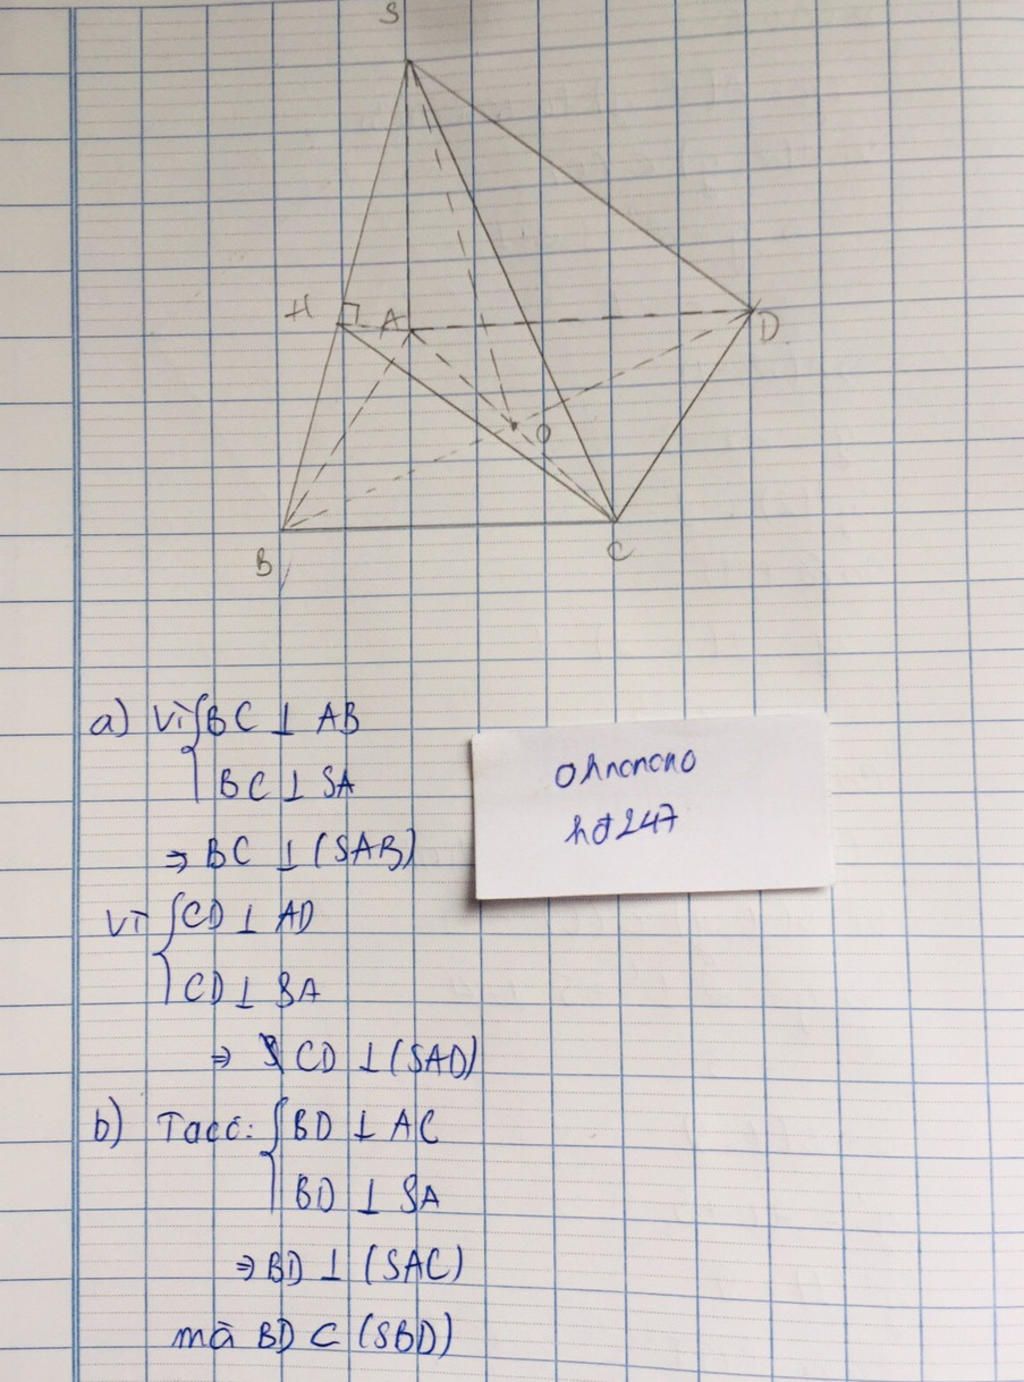 S
H
A
D
O
B
C
a) Vì { BC ⊥ AB
BC ⊥ SA
⇒ BC ⊥ (SAB)
Vì { CD ⊥ AD
CD ⊥ SA
⇒ CD ⊥ (SAD)
b) Ta có: { BD ⊥ AC
BD ⊥ SA
⇒ BD ⊥ (SAC)
mà BD ⊂ (SBD)
ohnonono
hđ247